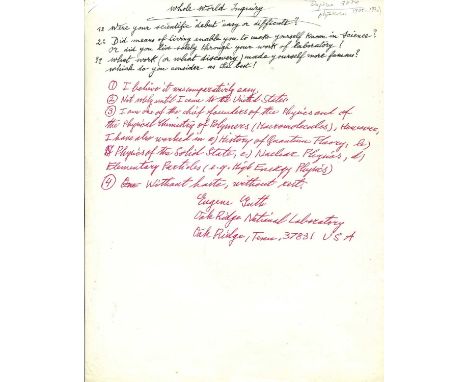 Whole World Inquiry
Eugene Guth
1o Were your scientific "debut" easy or difficult?
2o Did means of living enable you to make yourself known in science?
Or did you live solely through your work of laboratory?
3o What work (or what discovery) made yourself more famous?
which do you consider as the best?
① I believe it was comparatively easy.
② Not only until I came to the United States.
③ I am one of the chief founders of the Physics and of
the Physical Chemistry of Polymers (Macromolecules), However,
I have also worked in a) History of Quantum Theory, b)
Physics of the Solid State, c) Nuclear Physics, d)
Elementary Particles (e.g. High Energy Physics)
④ Without haste, without rest.
Eugene Guth
Oak Ridge National Laboratory
Oak Ridge, Tenn, 37831 U S A